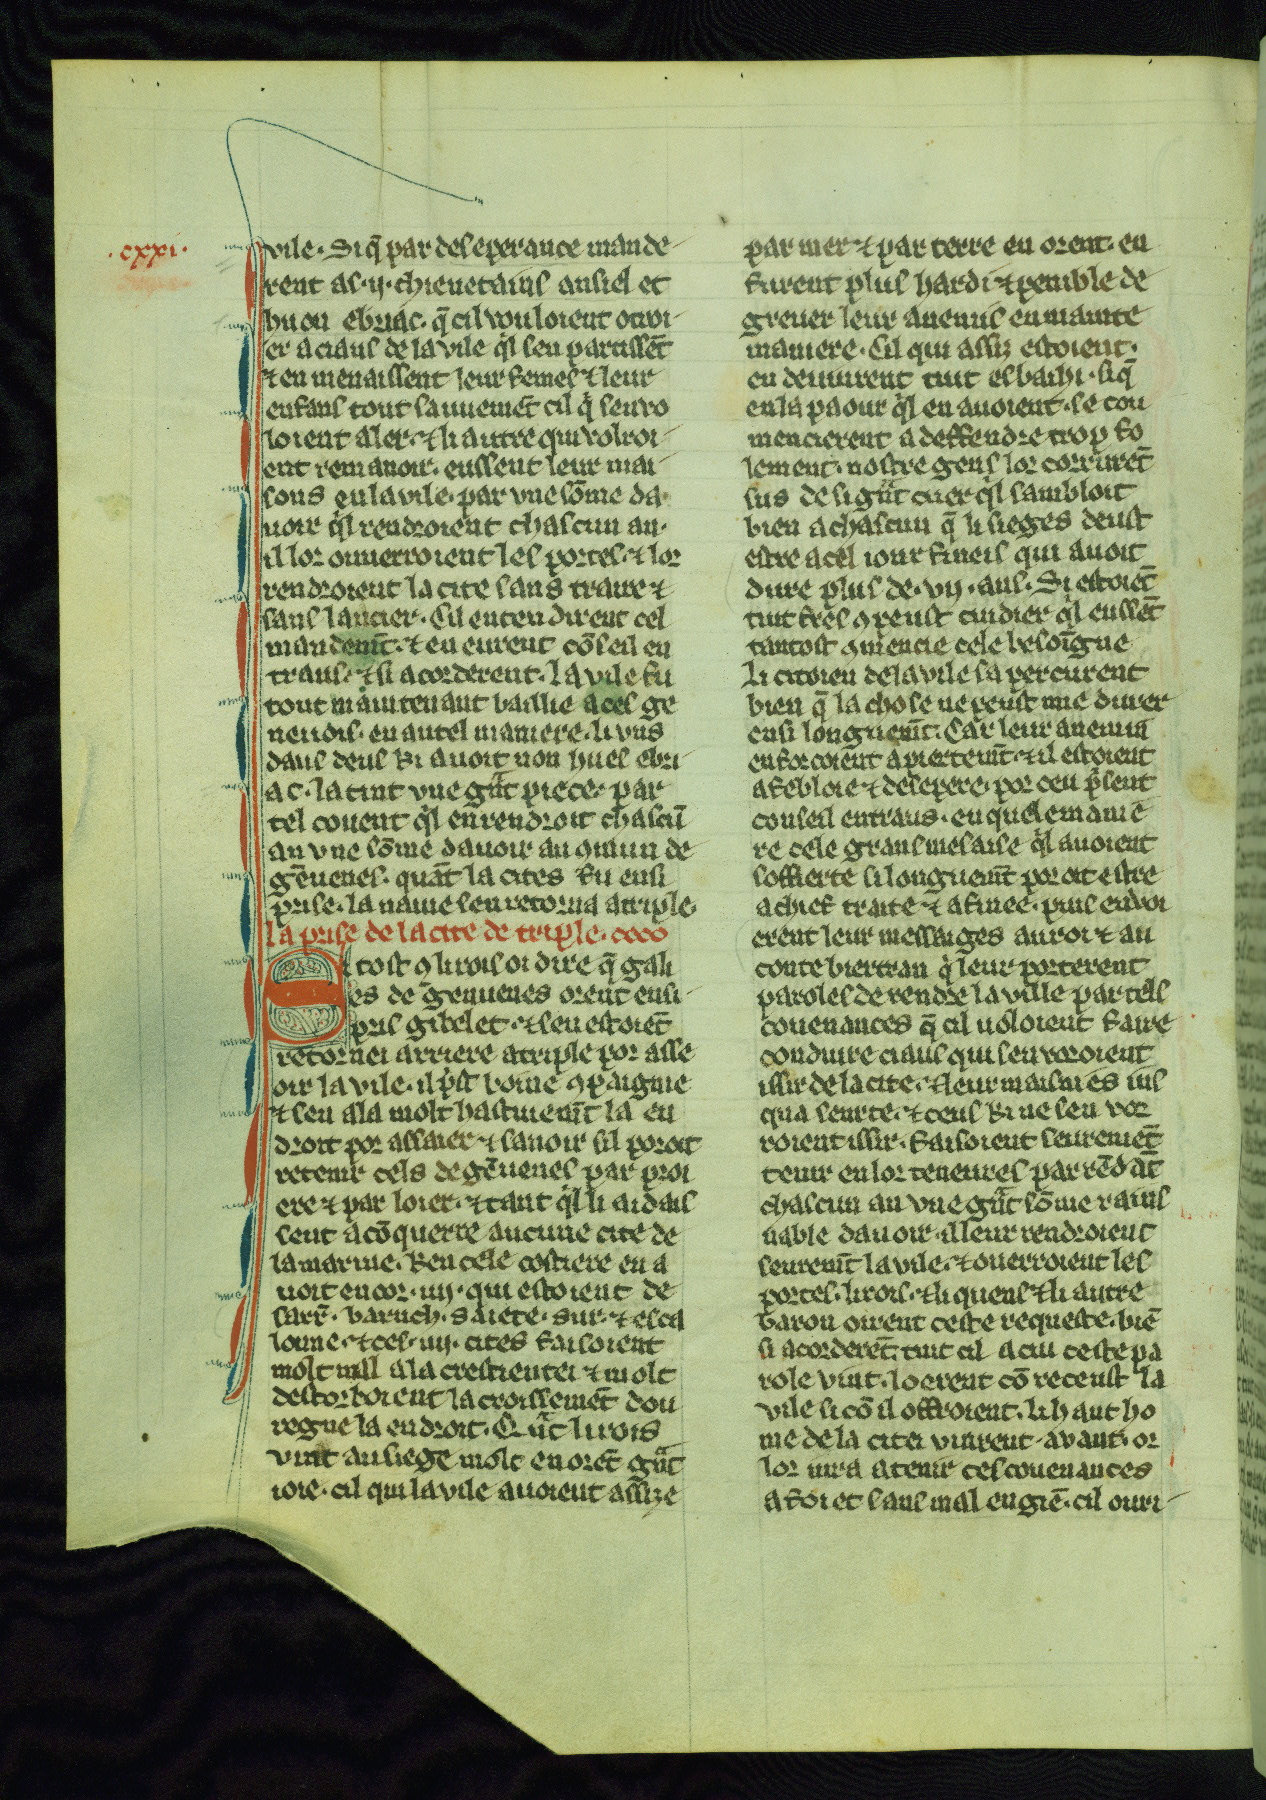 .cxxi.
vile. Siq̃ par desesperance mande-
rent as .ij. chieuetains ansiel et
huon ebriac. q̃ cil vouloient otroi-
er a ciaus de la vile q̓l sen partissẽt
⁊ en menaissent leur femes ⁊ leur
enfans tout sauuemẽt cil q̓ sen vo
loient aler. ⁊ li autre qui volroi-
ent remanoir. eussent leur mai
sons en la vile. par vne sõme da-
uoir q̓l rendroient chascun an.
il lor ouuerroient les portes. ⁊ lor
rendroient la cite sans traire ⁊
sans lancier. Cil entendirent cel
mandemt̃. ⁊ en eurent cõseil en
traus. ⁊ si acorderent. la vile fu
tout maintenant baillie a ces ge
neuois. en autel maniere. li vns
daus deus ki auoit non huel ebri
ac. la tint vne gᵃt piece. par
tel couent q̓l en rendroit chascũ
an vne sõme dauoir au ꝯmun de
gẽuenes. quãt la cites fu ensi
prise. la nauie sen retorna a triple.
la prise de la cite de triple. cccc
Si tost ꝯ li rois oi dire q̃ gali
es de genuenes orent ensi-
pris gibelet. ⁊ sen estoiẽt
retornei arriere a triple por asse
oir la vile. il p̓st boine ꝯpaignie
⁊ sen ala molt hastiuemt̃ la en
droit por assaier ⁊ sauoir sil poroit
retenir cels de gẽuenes par proi
ere ⁊ par loier. ⁊ tant q̓l li aidais
sent a cõquerre aucune cite de
la marine. K en cele costiere en a
uoit encor .iiij. qui estoient de
sarr̃. baruch. saiete. sur. ⁊ esca
lonne. ⁊ ces .iiij. cites faisoient
molt mal a la crestientei ⁊ molt
destorboient la croissemẽt dou
regne la endroit. Qᵃt li rois
vint au siege molt en orẽt gᵃt
ioie. cil qui la vile auoient assize
par mer ⁊ par terre en orent. en
furent plus hardi ⁊ penible de
greuer leur anemis en mainte
maniere. Cil qui assiz estoient.
en deuinrent tuit esbaihi. siq̃
en la paour q̓l en auoient. se cou
mencierent a deffendre trop fo
lement. nostre gens lor corrurẽt
sus de si gᵃt cuer q̓l sambloit
bien a chascun q̃ li sieges deust
estre a cel iour fineis qui auoit
dure plus de .vij. ans. Si estoiẽt
tuit fres ꝯ peust cuidier q̓l eussẽt
tantost ꝯmencie cele besoĩgne
Li citoien de la vile sapercurent
bien q̃ la chose ne peust mie durer
ensi longuemt̃. Car leur anemin
enforcoient apiertemt̃. ⁊ il estoient
afebloie ⁊ desespere. por ceu p̓sent
conseil entraus. en quele manie
re cele grans mesaise q̓l auoient
sofferte si longuemt̃ poroit estre
a chief traite ⁊ afinee. puis envoi
erent leur messaiges au roi ⁊ au
conte biertran q̓ leur porterent
paroles de rendre la ville par tels
couenances q̃ cil uoloient faire
conduire ciaus qui sen voroient
issir de la cite. ⁊ leur maisnies ius
qua seurte. ⁊ ceus ki ne sen vor
roient issir. faisoient seuremẽt
tenir en lor teneures par rẽdãt
chascun an vne gᵃt sõme rains
nable dauoir. il leur rendroient
seuremt̃ la vile. ⁊ ouerroient les
portes. li rois. ⁊ li quens ⁊ li autre
baron oirent ceste requeste. biẽ
si acorderẽt. tuit cil a cui ceste pa
role vint. loerent cõ receust la
vile si cõ il offroient. Li haut ho
me de la citei vinrent avant. or
lor iura a tenir ces couenances
a foi et sans mal engiẽ. cil ouri-